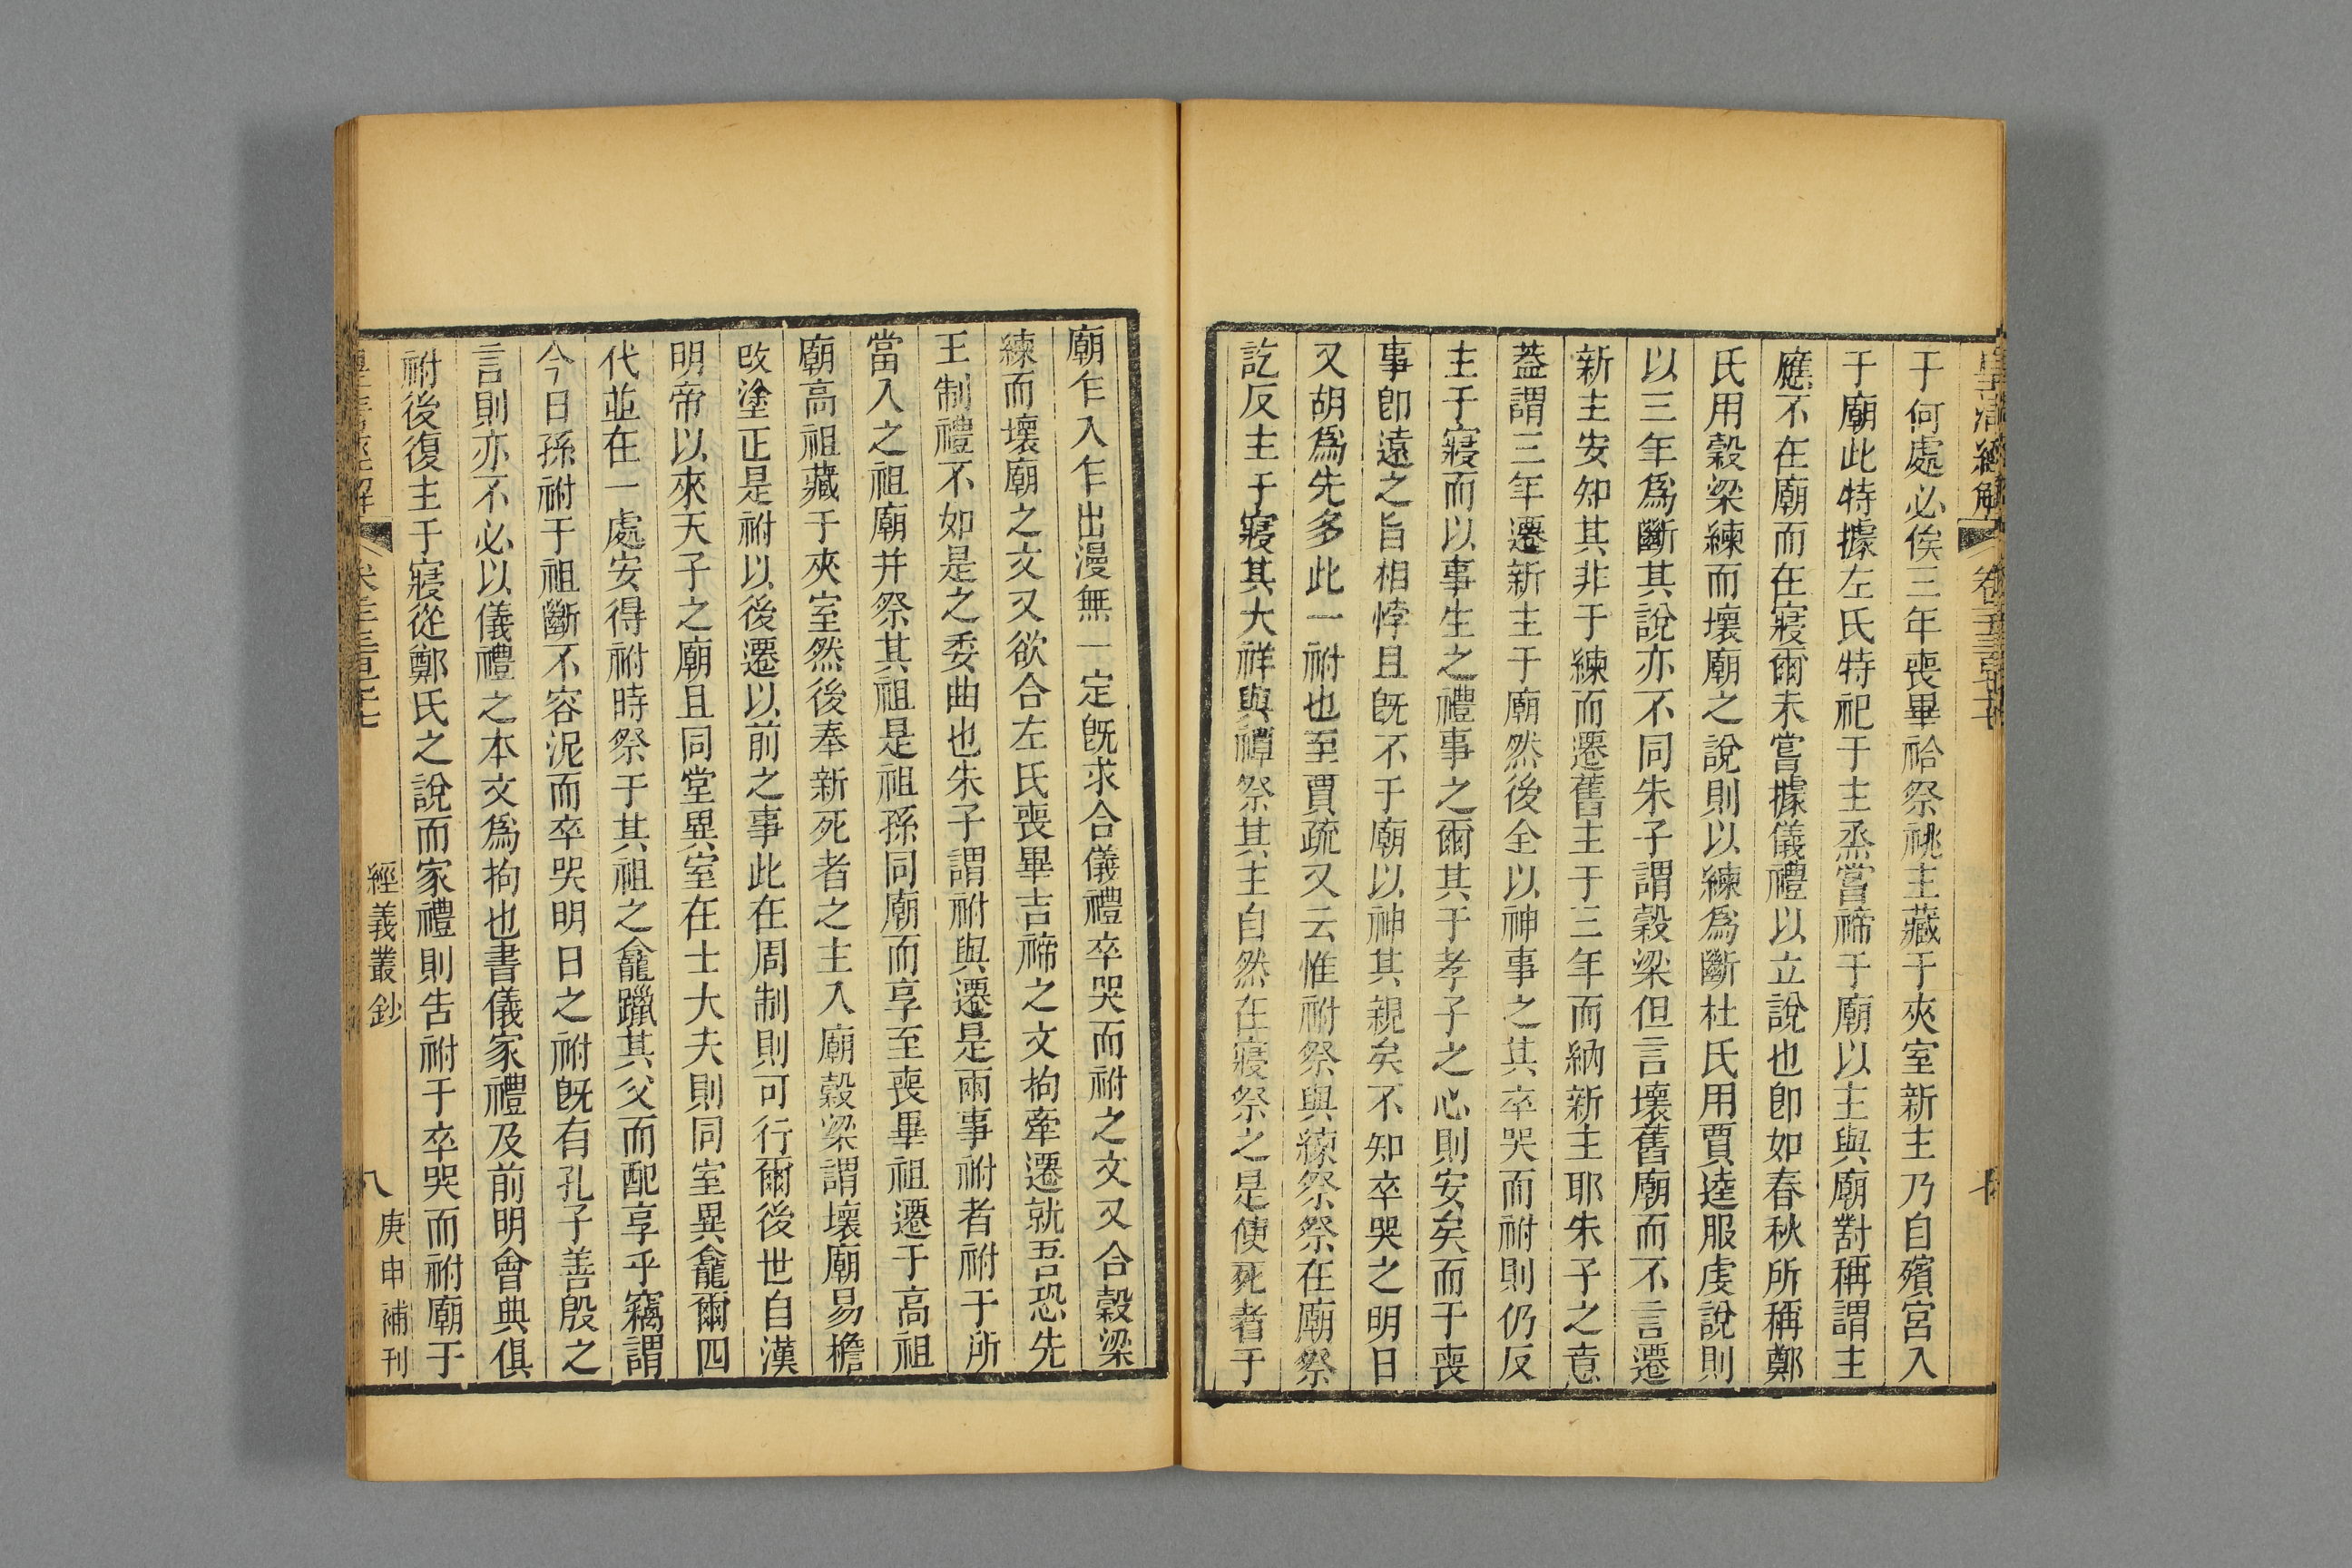 皇清經解 卷
于何處必俟三年喪畢祫祭祧主藏于夾室新主乃自殯宮入
于廟此特據左氏特祀于主烝嘗禘于廟以主與廟對稱謂主
應不在廟而在寢爾未嘗據儀禮以立說也卽如春秋所稱鄭
氏用穀梁練而壞廟之說則以練爲斷杜氏用賈逵服虔說則
以三年爲斷其說亦不同朱子謂穀梁但言壞舊廟而不言遷
新主安知其非于練而遷舊主于三年而納新主耶朱子之意
葢謂三年遷新主于廟然後全以神事之其卒哭而祔則仍反
主于寢而以事生之禮事之爾其于孝子之心則安矣而于喪
事卽遠之旨相悖且旣不于廟以神其親矣不知卒哭之明日
又胡爲先多此一祔也至賈疏又云惟祔祭與練祭祭在廟祭
訖反主于寢其大祥與禫祭其主自然在寢祭之是使死者于
廟乍入乍出漫無一定旣求合儀禮卒哭而祔之文又合穀梁
練而壞廟之文又欲合左氏喪畢吉禘之文拘牽遷就吾恐先
王制禮不如是之委曲也朱子謂祔與遷是兩事祔者祔于所
當入之祖廟并祭其祖是祖孫同廟而享至喪畢祖遷于高祖
廟高祖藏于夾室然後奉新死者之主入廟穀梁謂壞廟易檐
改塗正是祔以後遷以前之事此在周制則可行爾後世自漢
明帝以來天子之廟且同堂異室在士大夫則同室異龕爾四
代並在一處安得祔時祭于其祖之龕躐其父而配享乎竊謂
今日孫祔于祖斷不容泥而卒哭明日之祔旣有孔子善殷之
言則亦不必以儀禮之本文爲拘也書儀家禮及前明會典俱
祔後復主于寢從鄭氏之說而家禮則告祔于卒哭而祔廟于
經義叢鈔
八
庚申補刊